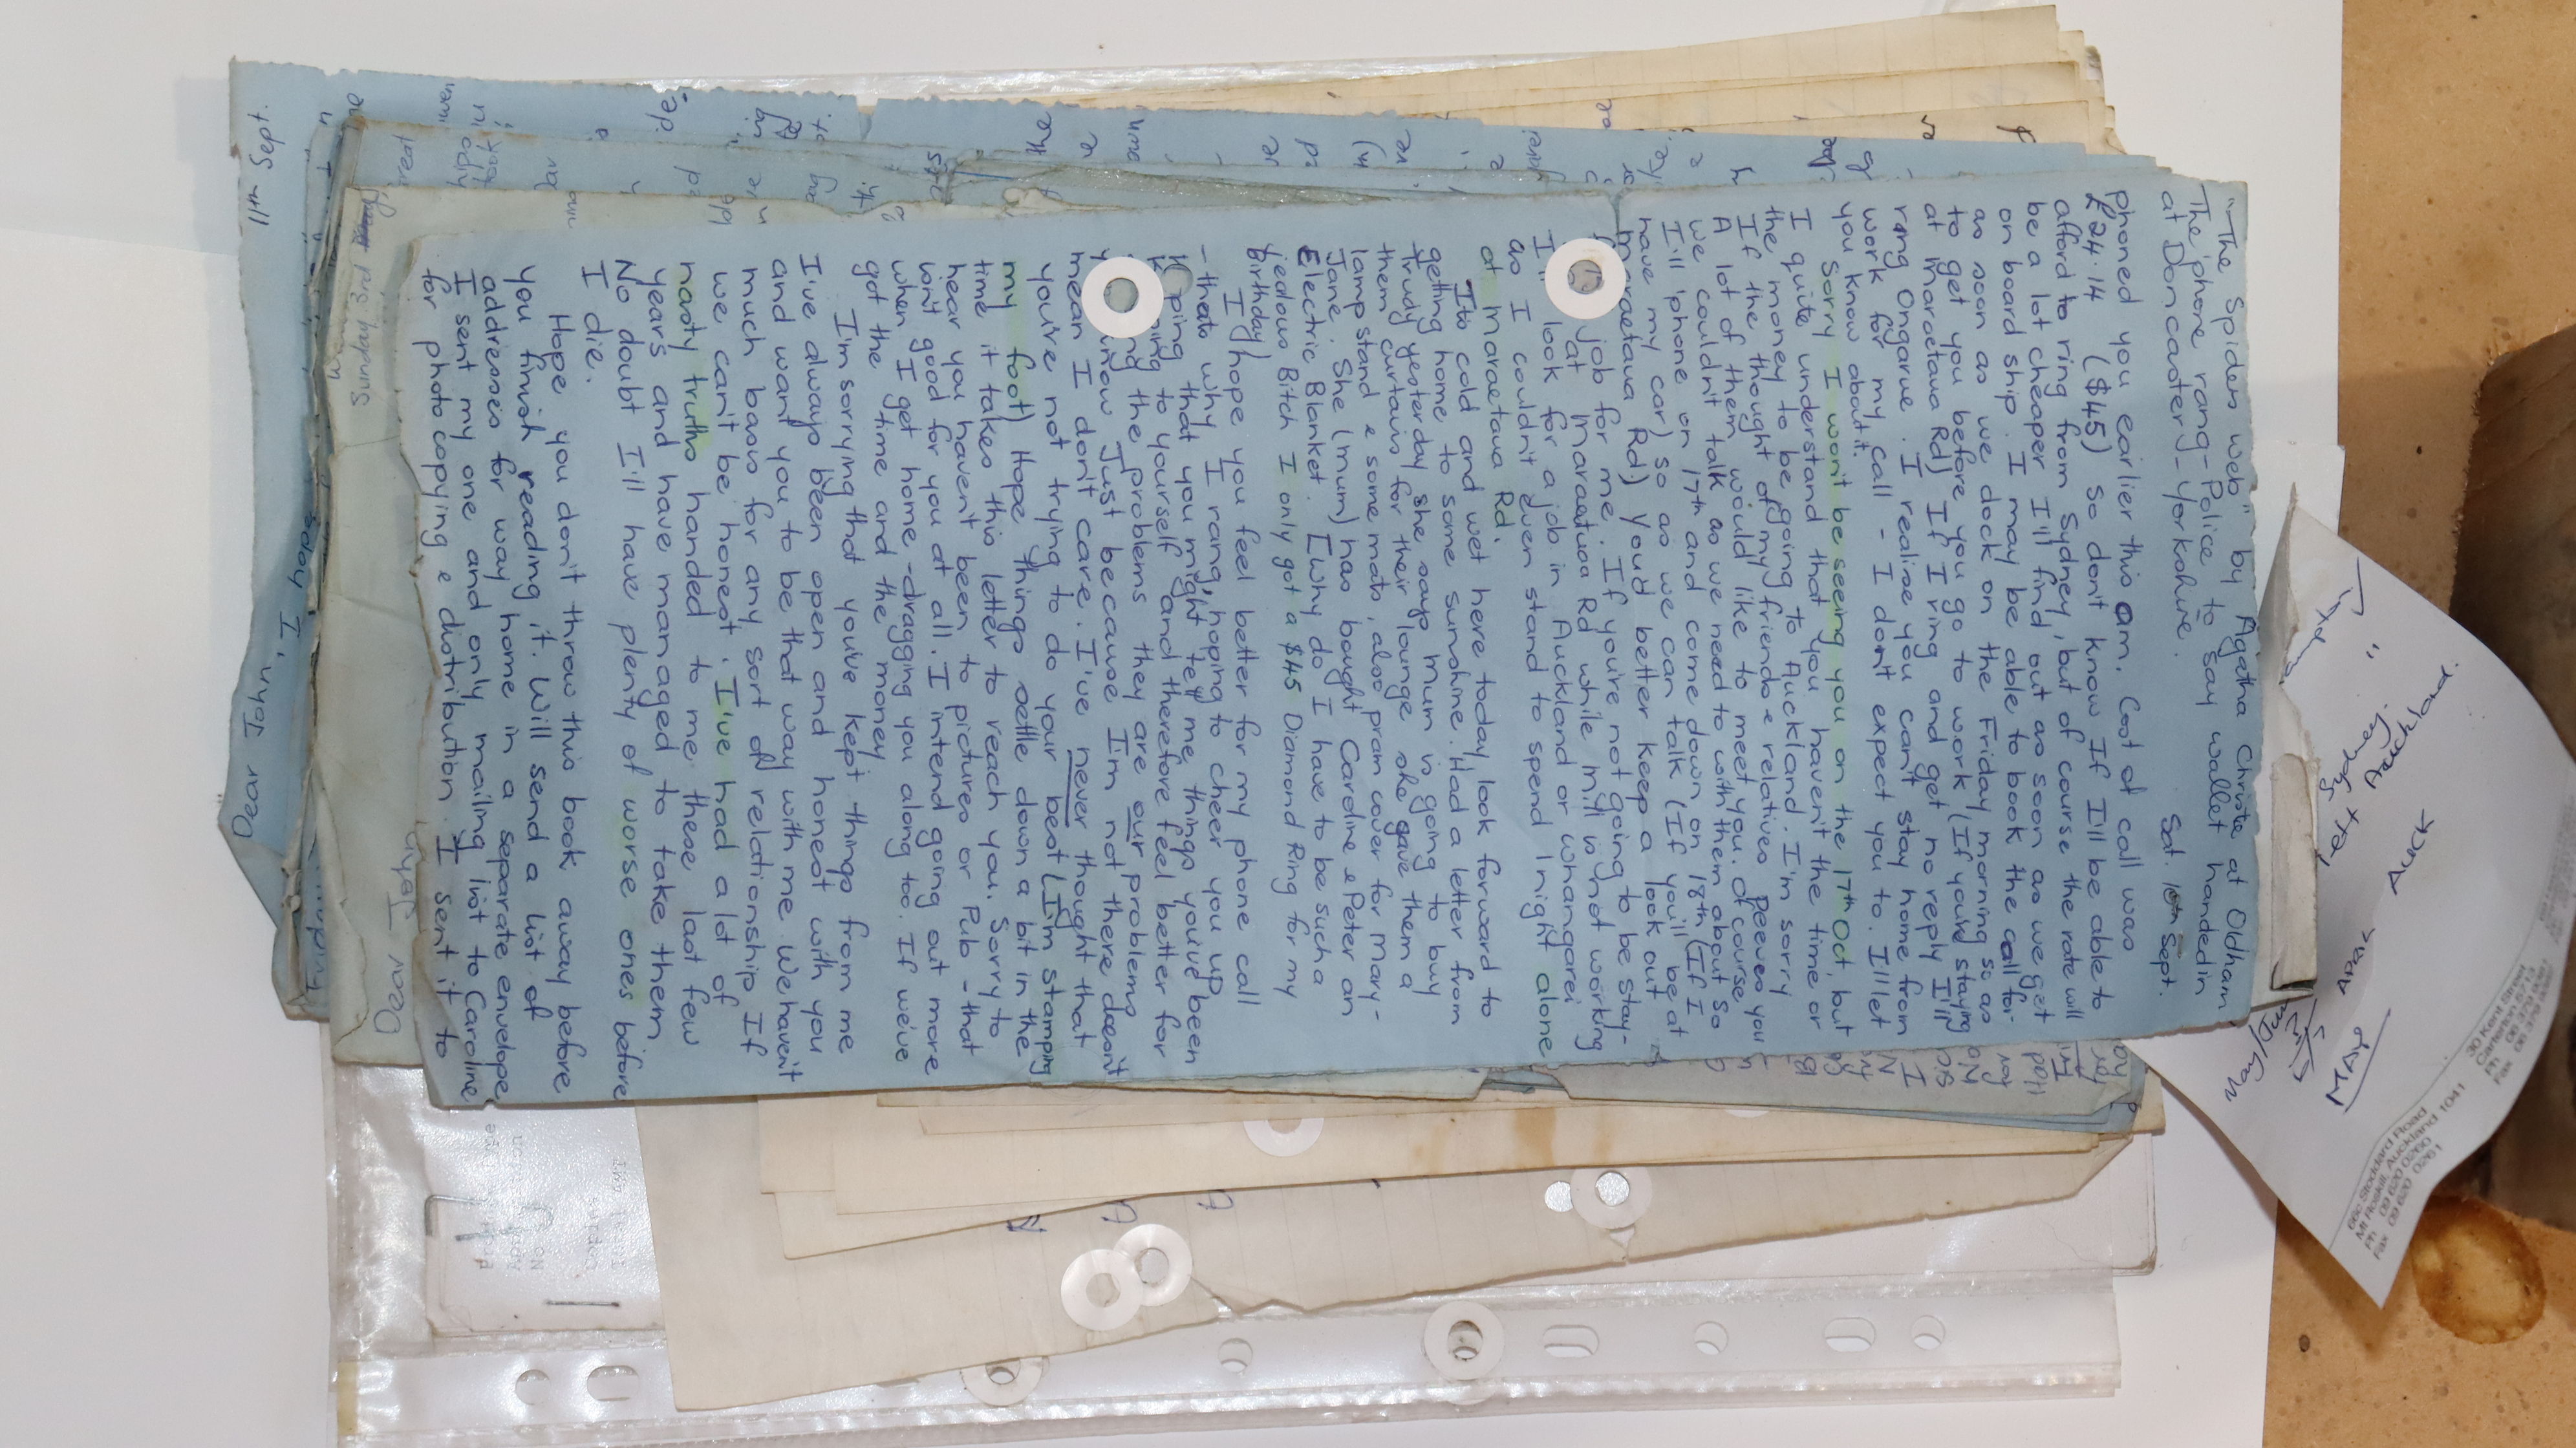 "The Spiders Web" by Agatha Christie at Oldham
The 'phone rang - Police to say wallet handed in
at Doncaster - Yorkshire.
Sat. 10th Sept.
phoned you earlier this am. Cost of call was
£24.14 ($45) So don't know If I'll be able to
afford to ring from Sydney, but of course the rate will
be a lot cheaper I'll find out as soon as we get
on board ship. I may be able to book the call for-
as soon as we dock on the Friday morning so as
to get you before you go to work (If you're staying
at Maraetaua Rd) If I ring and get no reply I'll
ring Ongarue. I realise you can't stay home from
work for my call - I don't expect you to. I'll let
you know about it.
Sorry I won't be seeing you on the 17th Oct, but
I quite understand that you haven't the time or
the money to be going to Auckland. I'm sorry
If the thought of my friends & relatives peeves you
A lot of them would like to meet you. Of course
we couldn't talk as we need to with them about so
I'll 'phone on 17th and come down on 18th (If I
have my car) so as we can talk (If you'll be at
Maraetaua Rd) you'd better keep a look out
job for me. If you're not going to be stay-
at Maraetaua Rd while mill is not working
I'll look for a job in Auckland or Whangarei
as I couldn't even stand to spend 1 night alone
at Maraetaua Rd.
Its cold and wet here today, look forward to
getting home to some sunshine. Had a letter from
Trudy yesterday she says Mum is going to buy
them curtains for their lounge she gave them a
lamp stand & some mats, also pram cover for Mary-
Jane. She (Mum) has bought Caroline & Peter an
Electric Blanket. [Why do I have to be such a
jealous Bitch I only got a $45 Diamond Ring for my
Birthday]
I hope you feel better for my phone call
- thats why I rang, hoping to cheer you up
hoping that you might tell me things you've been
keeping to yourself and therefore feel better for
the problems they are our problems
you know Just because I'm not there doesn't
mean I don't care. I've never thought that
you're not trying to do your best (I'm stamping
my foot) Hope things settle down a bit in the
time it takes this letter to reach you. Sorry to
hear you haven't been to pictures or Pub - that
isn't good for you at all. I intend going out more
when I get home - dragging you along too. If we've
got the time and the money
I'm sorrying that you've kept things from me
I've always been open and honest with you
and want you to be that way with me. We haven't
much basis for any sort of relationship If
we can't be honest. I've had a lot of
nasty truths handed to me these last few
years and have managed to take them
No doubt I'll have plenty of worse ones before
I die.
Hope you don't throw this book away before
you finish reading it. Will send a list of
addresses for way home in a separate envelope
I sent my one and only mailing list to Caroline
for photocopying & distribution. I sent it to
Dear John, I hope
11th Sept.
Friday
Dear John
Sunday 3rd
Sydney.
Left Auckland.
Auck
May/Jun
MAP
66c Stoddard Road
Mt Roskill, Auckland 1041
Ph 09 620 0260
Fax 09 620 0261
30 Kent Street
Carterton 5713
Ph 06 379
Fax 06 379